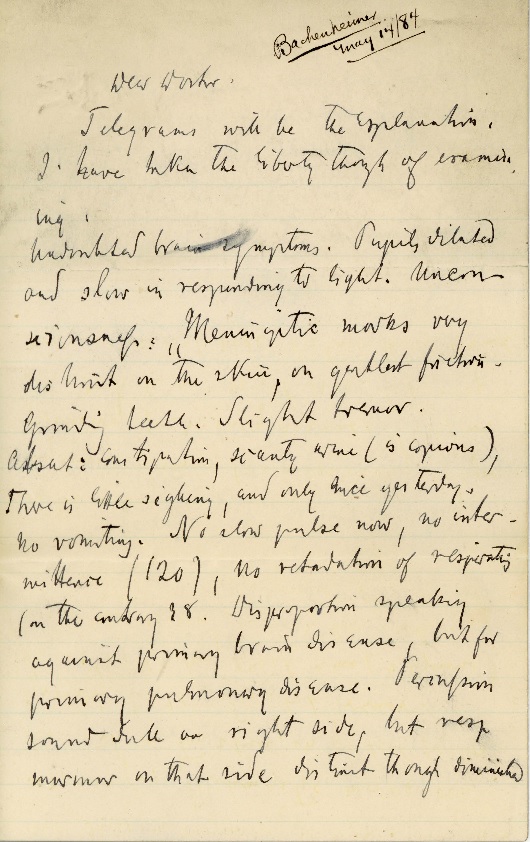 Bachenheimer
May 14/84
Dear Doctor.
Telegrams will be the Explanation.
I have taken the liberty though of examin
ing.
Undoubted brain symptoms. Pupils dilated
and slow in responding to light. Uncon
sciousness: "Meningitic marks very
distinct on the skin, on gentlest friction.
Grinding teeth. Slight tremor.
Absent: constipation, scanty urine (is copious),
There is little sighing, and only since yesterday.
No vomiting. No slow pulse now, no inter-
mittence (120), no retardation of respiration
(on the contrary 38. Disproportion speaking
against primary brain disease, but for
primary pulmonary disease. Percussion
sound dull on right side, but resp
murmur on that side distinct though diminished